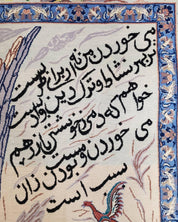 می خوردن من نه از برای طرب است
نز بهر نشاط و ترک دین و ادب است
خواهم که دمی ز خویشتن باز رهم
می خوردن و مست بودنم زان
سبب است